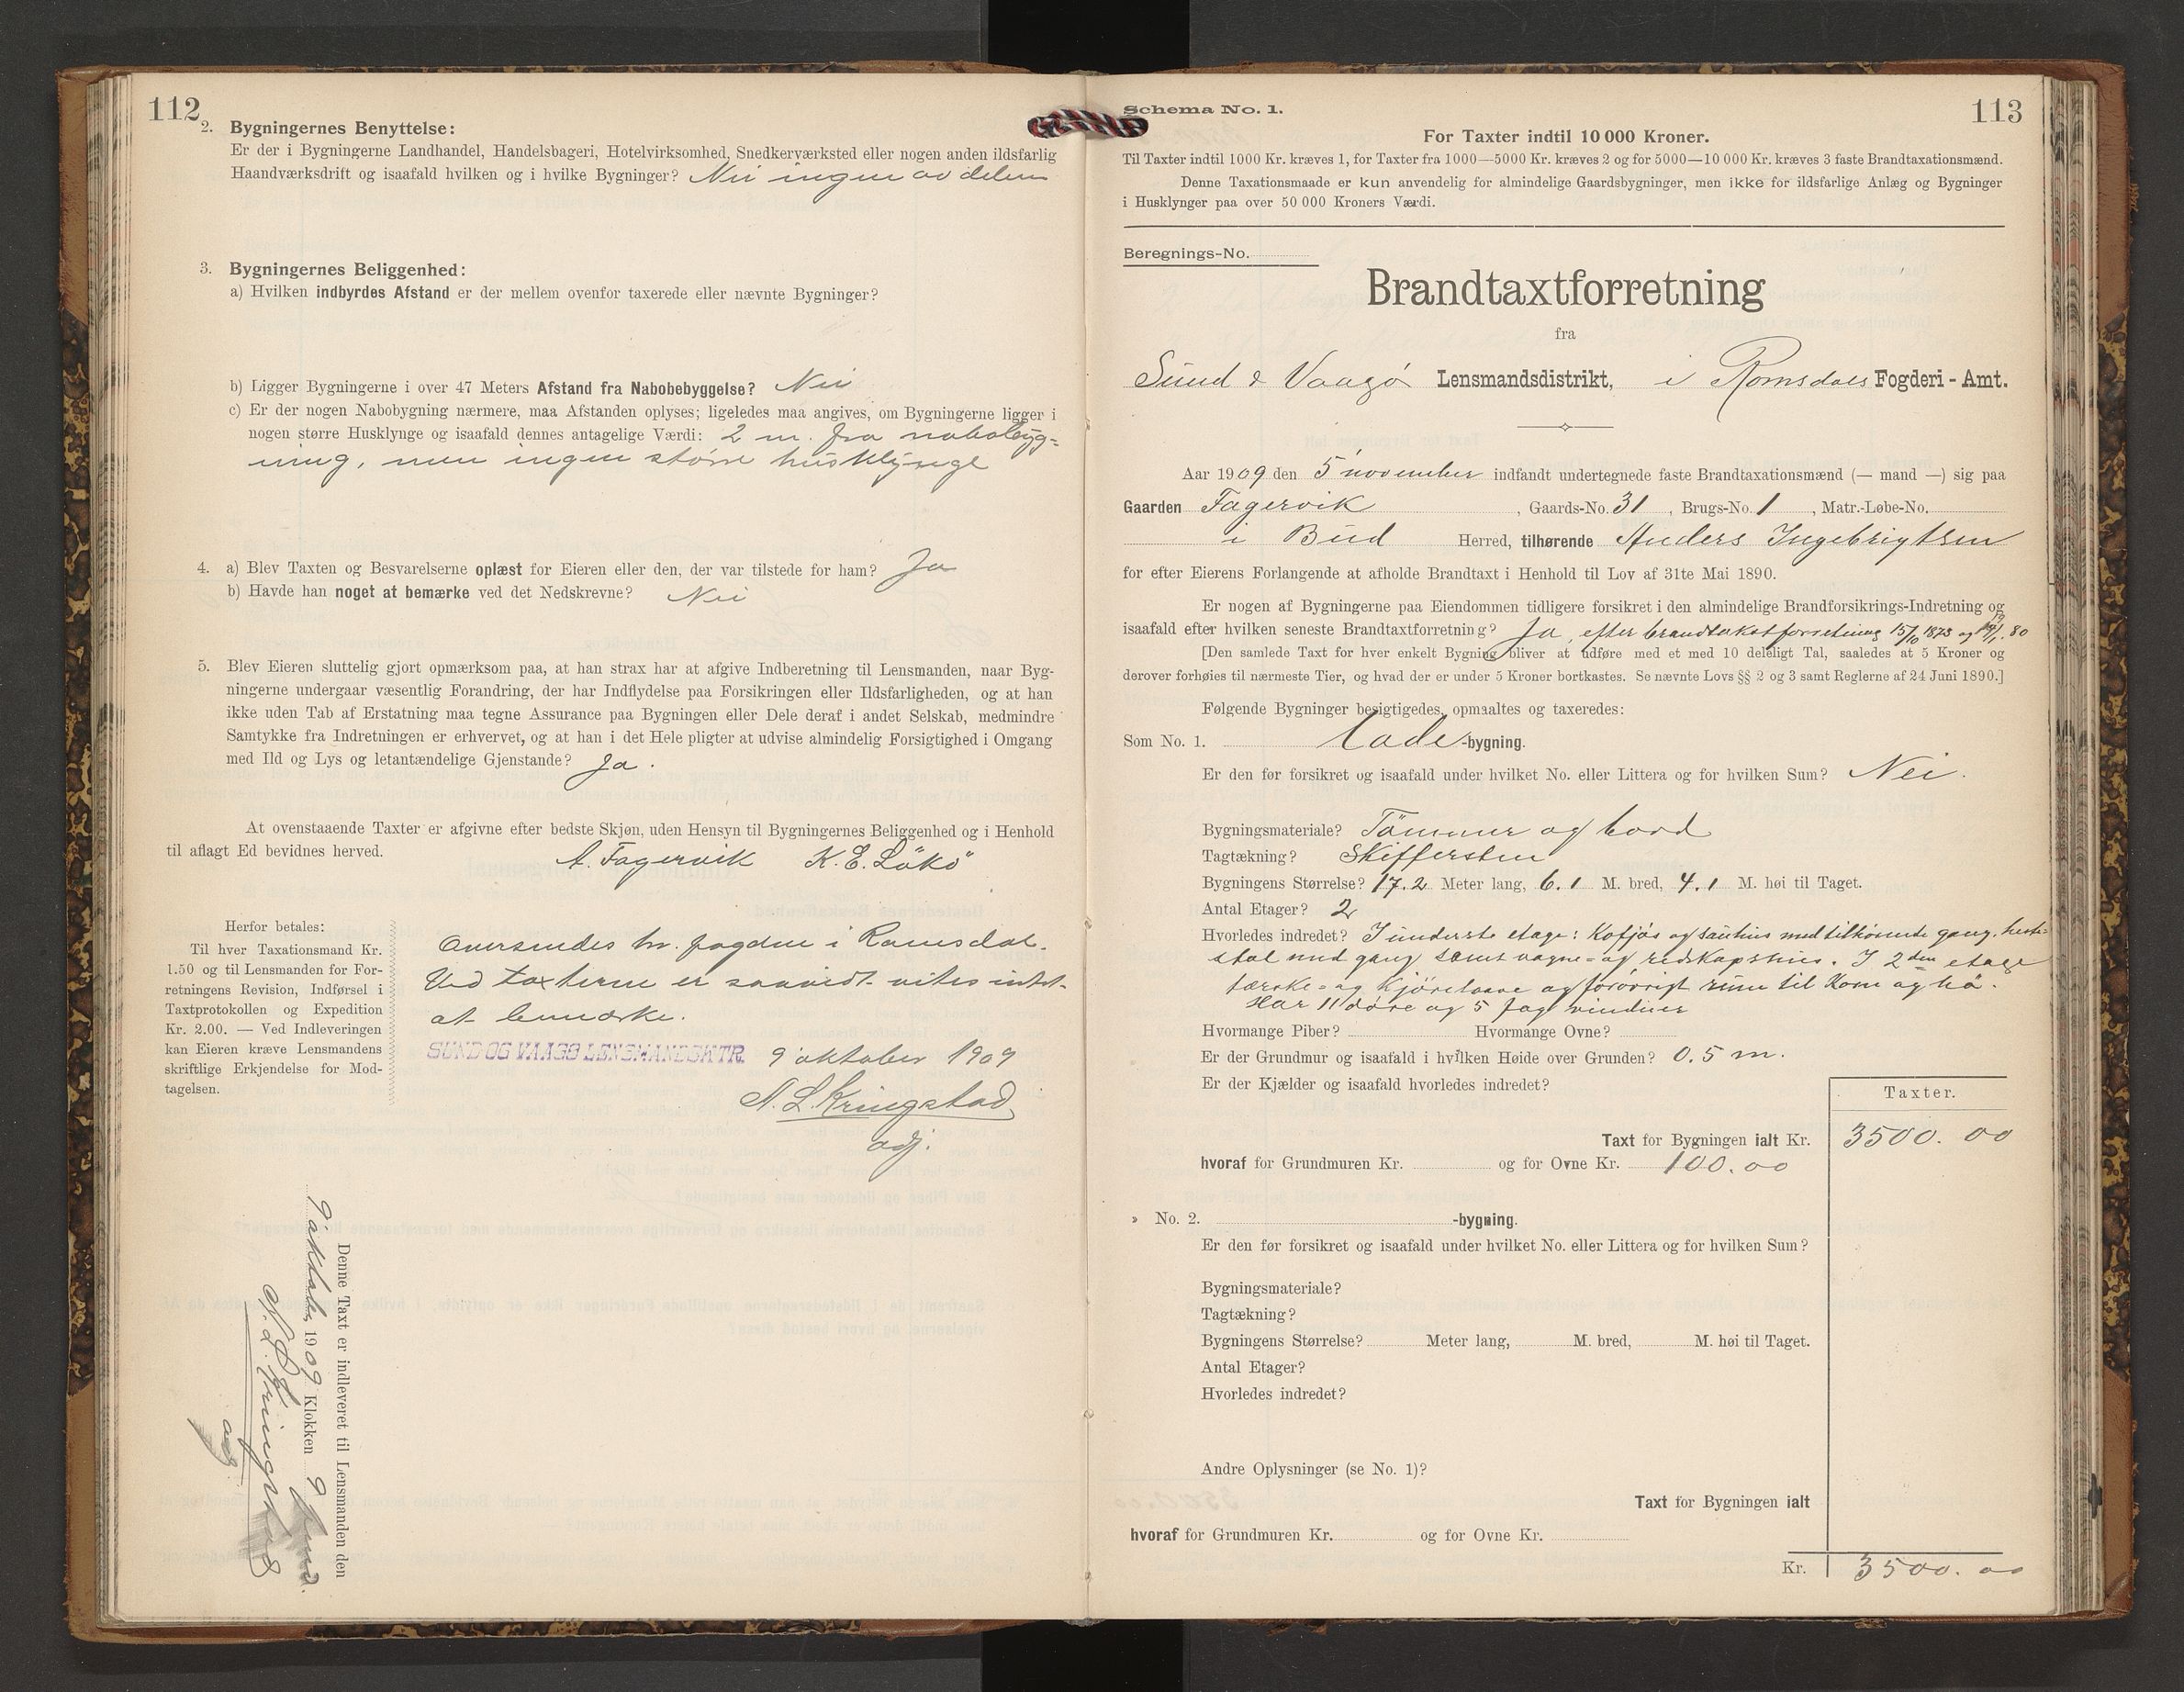 112
2. Bygningernes Benyttelse:
Er der i Bygningerne Landhandel, Handelsbageri, Hotelvirksomhed, Snedkerværksted eller nogen anden ildsfarlig
Haandværksdrift og isaafald hvilken og i hvilke Bygninger? Nei ingen av delene
3. Bygningernes Beliggenhed:
a) Hvilken indbyrdes Afstand er der mellem ovenfor taxerede eller nævnte Bygninger?
b) Ligger Bygningerne i over 47 Meters Afstand fra Nabobebyggelse? Nei
c) Er der nogen Nabobygning nærmere, maa Afstanden oplyses; ligeledes maa angives, om Bygningerne ligger i
nogen større Husklynge og isaafald dennes antagelige Værdi: 2 m. fra nabobyg-
ning, men ingen större husklynge
4. a) Blev Taxten og Besvarelserne oplæst for Eieren eller den, der var tilstede for ham? Ja
b) Havde han noget at bemærke ved det Nedskrevne? Nei
5. Blev Eieren sluttelig gjort opmærksom paa, at han strax har at afgive Indberetning til Lensmanden, naar Byg-
ningerne undergaar væsentlig Forandring, der har Indflydelse paa Forsikringen eller Ildsfarligheden, og at han
ikke uden Tab af Erstatning maa tegne Assurance paa Bygningen eller Dele deraf i andet Selskab, medmindre
Samtykke fra Indretningen er erhvervet, og at han i det Hele pligter at udvise almindelig Forsigtighed i Omgang
med Ild og Lys og letantændelige Gjenstande? Ja.
At ovenstaaende Taxter er afgivne efter bedste Skjøn, uden Hensyn til Bygningernes Beliggenhed og i Henhold
til aflagt Ed bevidnes herved.
A. Fagervik K. E. Lökö
Herfor betales:
Til hver Taxationsmand Kr.
1.50 og til Lensmanden for For-
retningens Revision, Indførsel i
Taxtprotokollen og Expedition
Kr. 2.00. — Ved Indleveringen
kan Eieren kræve Lensmandens
skriftlige Erkjendelse for Mod-
tagelsen.
Oversendes hr. fogden i Romsdal.
Ved taxterne er saavidt vites intet
at bemærke.
SUND OG VAAGØ LENSMANDSKTR. 9 oktober 1909
N. L. Kringstad
adj.
Denne Taxt er indleveret til Lensmanden den
9 oktober 1909 Klokken 9 fmd.
N. L. Kringstad
adj
113
Schema No. 1.
For Taxter indtil 10 000 Kroner.
Til Taxter indtil 1000 Kr. kræves 1, for Taxter fra 1000—5000 Kr. kræves 2 og for 5000—10 000 Kr. kræves 3 faste Brandtaxationsmænd.
Denne Taxationsmaade er kun anvendelig for almindelige Gaardsbygninger, men ikke for ildsfarlige Anlæg og Bygninger
i Husklynger paa over 50 000 Kroners Værdi.
Beregnings-No.
Brandtaxtforretning
fra
Sund & Vaagø Lensmandsdistrikt, i Romsdals Fogderi - Amt.
Aar 1909 den 5 november indfandt undertegnede faste Brandtaxationsmænd (— mand —) sig paa
Gaarden Fagervik, Gaards-No. 31, Brugs-No. 1, Matr.-Løbe-No.
i Bud Herred, tilhørende Anders Ingebrigtsen
for efter Eierens Forlangende at afholde Brandtaxt i Henhold til Lov af 31te Mai 1890.
Er nogen af Bygningerne paa Eiendommen tidligere forsikret i den almindelige Brandforsikrings-Indretning og
isaafald efter hvilken seneste Brandtaxtforretning? Ja, efter brandtakstforretning 15/10 1873 og 80
[Den samlede Taxt for hver enkelt Bygning bliver at udføre med et med 10 deleligt Tal, saaledes at 5 Kroner og
derover forhøies til nærmeste Tier, og hvad der er under 5 Kroner bortkastes. Se nævnte Lovs §§ 2 og 3 samt Reglerne af 24 Juni 1890.]
Følgende Bygninger besigtigedes, opmaaltes og taxeredes:
Som No. 1. Lade-bygning.
Er den før forsikret og isaafald under hvilket No. eller Littera og for hvilken Sum? Nei.
Bygningsmateriale? Tömmer og bord
Tagtækning? Skiffersten
Bygningens Størrelse? 17.2 Meter lang, 6.1 M. bred, 4.1 M. høi til Taget.
Antal Etager? 2
Hvorledes indretet? I underste etage: Kofjös og sauhus med tilhörende gang, heste-
stal med gang samt vogne- og redskapshus. I 2den etage
tærske- og kjörelaave og forövrigt rum til Korn og hö.
Har 11 döre og 5 fag vinduer
Hvormange Piber? Hvormange Ovne?
Er der Grundmur og isaafald i hvilken Høide over Grunden? 0.5 m.
Er der Kjælder og isaafald hvorledes indredet?
Taxter.
Taxt for Bygningen ialt Kr. 3500. 00
hvoraf for Grundmuren Kr. og for Ovne Kr. 100.00
» No. 2. -bygning.
Er den før forsikret og isaafald under hvilket No. eller Littera og for hvilken Sum?
Bygningsmateriale?
Tagtækning?
Bygningens Størrelse? Meter lang, M. bred, M. høi til Taget.
Antal Etager?
Hvorledes indredet?
Andre Oplysninger (se No. 1)?
Taxt for Bygningen ialt
hvoraf for Grundmuren Kr. og for Ovne Kr.
Kr. 3500. 00